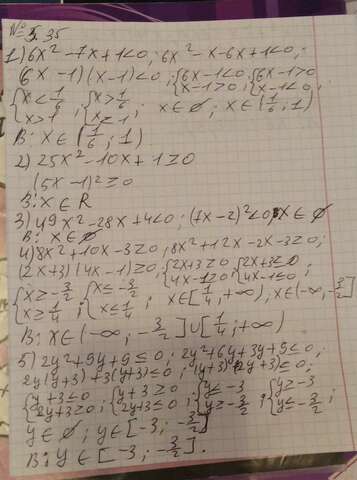 № 5.35
1) 6x² - 7x + 1 < 0; 6x² - x - 6x + 1 < 0;
(6x - 1)(x - 1) < 0; {6x - 1 < 0 {6x - 1 > 0
{x - 1 > 0; {x - 1 < 0;
{x < 1/6 {x > 1/6
{x > 1 {x < 1; x ∈ ∅; x ∈ (1/6; 1)
В: x ∈ (1/6; 1)
2) 25x² - 10x + 1 ≥ 0
(5x - 1)² ≥ 0
В: x ∈ R
3) 49x² - 28x + 4 < 0; (7x - 2)² < 0; x ∈ ∅
В: x ∈ ∅
4) 8x² + 10x - 3 ≥ 0; 8x² + 12x - 2x - 3 ≥ 0;
(2x + 3)(4x - 1) ≥ 0; {2x + 3 ≥ 0 {2x + 3 ≤ 0
{4x - 1 ≥ 0; {4x - 1 ≤ 0;
{x ≥ -3/2 {x ≤ -3/2
{x ≥ 1/4; {x ≤ 1/4; x ∈ [1/4; +∞), x ∈ (-∞; -3/2]
В: x ∈ (-∞; -3/2] ∪ [1/4; +∞)
5) 2y² + 9y + 9 ≤ 0; 2y² + 6y + 3y + 9 ≤ 0;
2y(y + 3) + 3(y + 3) ≤ 0; (y + 3)(2y + 3) ≤ 0;
{y + 3 ≤ 0 {y + 3 ≥ 0 {y ≤ -3 {y ≥ -3
{2y + 3 ≥ 0; {2y + 3 ≤ 0; {y ≥ -3/2; {y ≤ -3/2;
y ∈ ∅; y ∈ [-3; -3/2]
В: y ∈ [-3; -3/2].